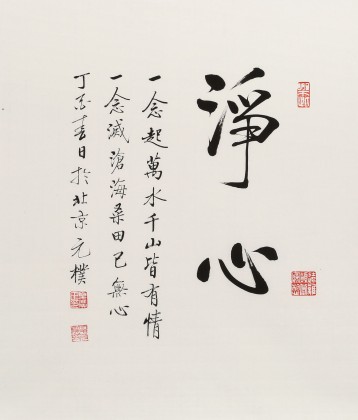 淨心
一念起萬水千山皆有情
一念滅滄海桑田已無心
丁酉春日於北京元樸